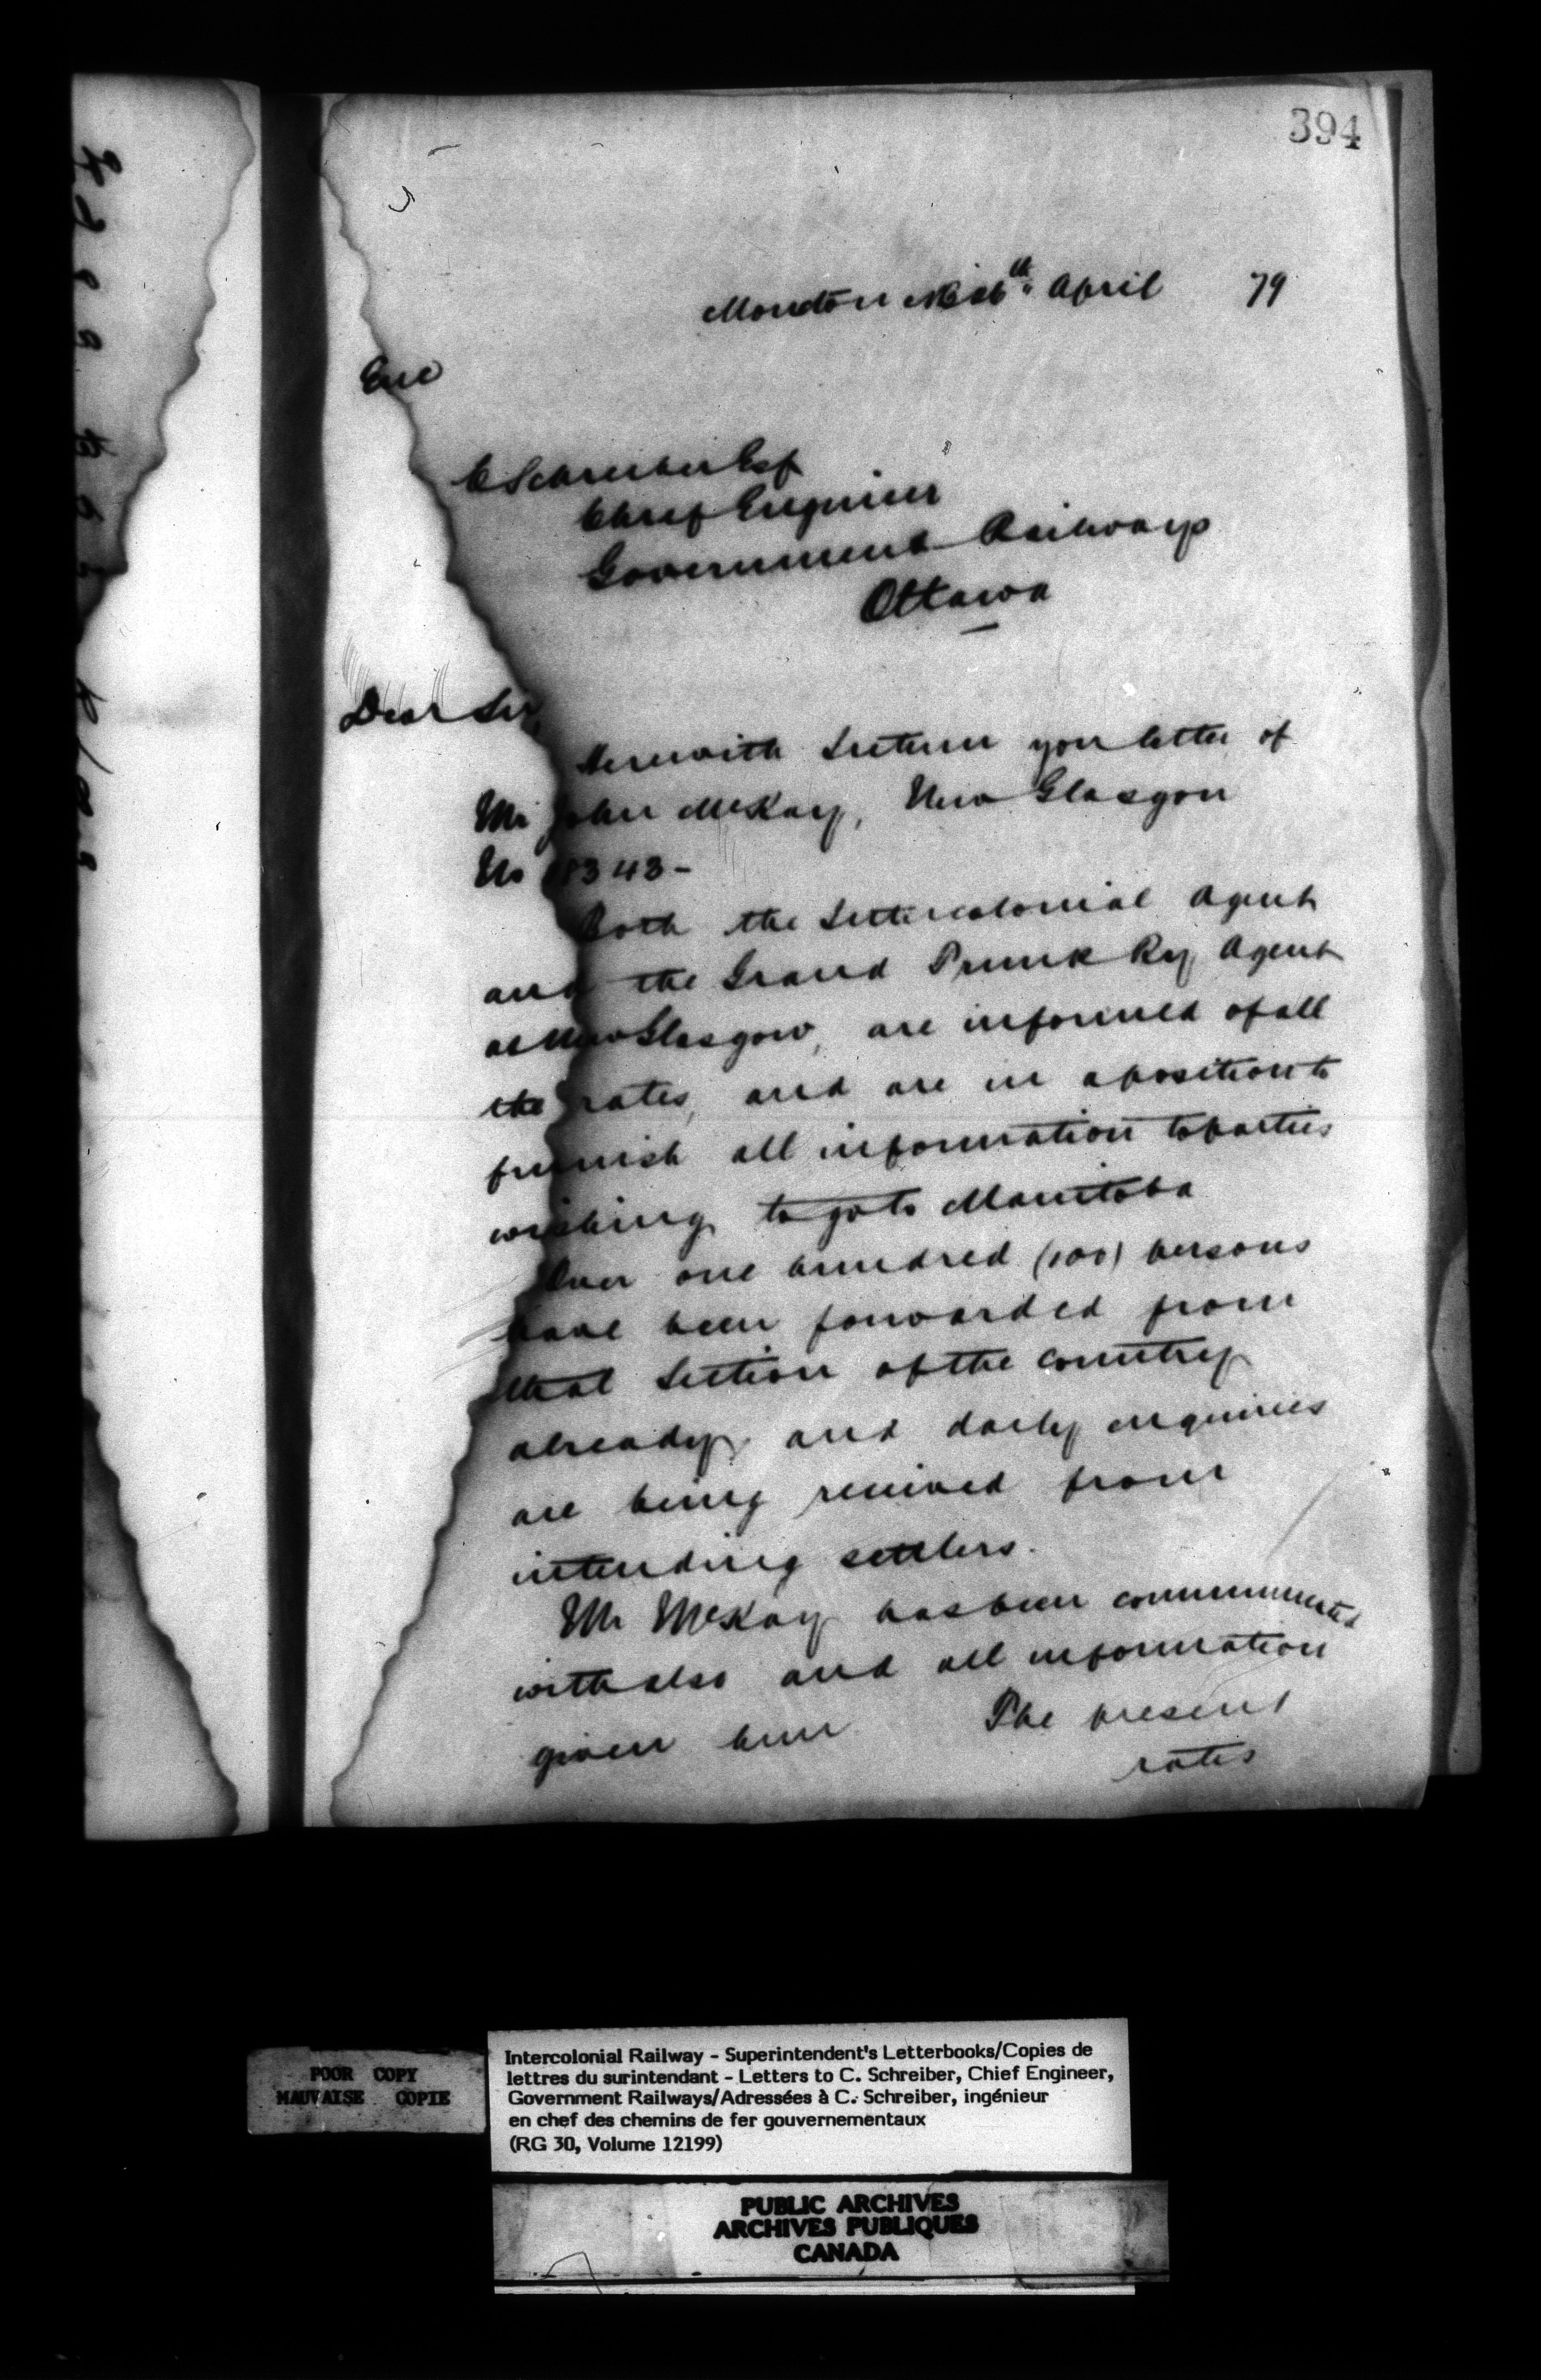 394
Moncton NB 26th April 79
Enc
C Schreiber Esq
Chief Engineer
Government Railways
Ottawa
Dear Sir,
Herewith I return you letter of
Mr John McKay, New Glasgow
No 8343-
Both the Intercolonial Agent
and the Grand Trunk Ry Agent
at New Glasgow, are informed of all
the rates, and are in a position to
furnish all information to parties
wishing to go to Manitoba
Over one hundred (100) persons
have been forwarded from
that section of the country
already, and daily enquiries
are being received from
intending settlers.
Mr McKay has been communicated
with also and all information
given him The present
rates
POOR COPY
MAUVAISE COPIE
Intercolonial Railway - Superintendent's Letterbooks/Copies de
lettres du surintendant - Letters to C. Schreiber, Chief Engineer,
Government Railways/Adressées à C. Schreiber, ingénieur
en chef des chemins de fer gouvernementaux
(RG 30, Volume 12199)
PUBLIC ARCHIVES
ARCHIVES PUBLIQUES
CANADA